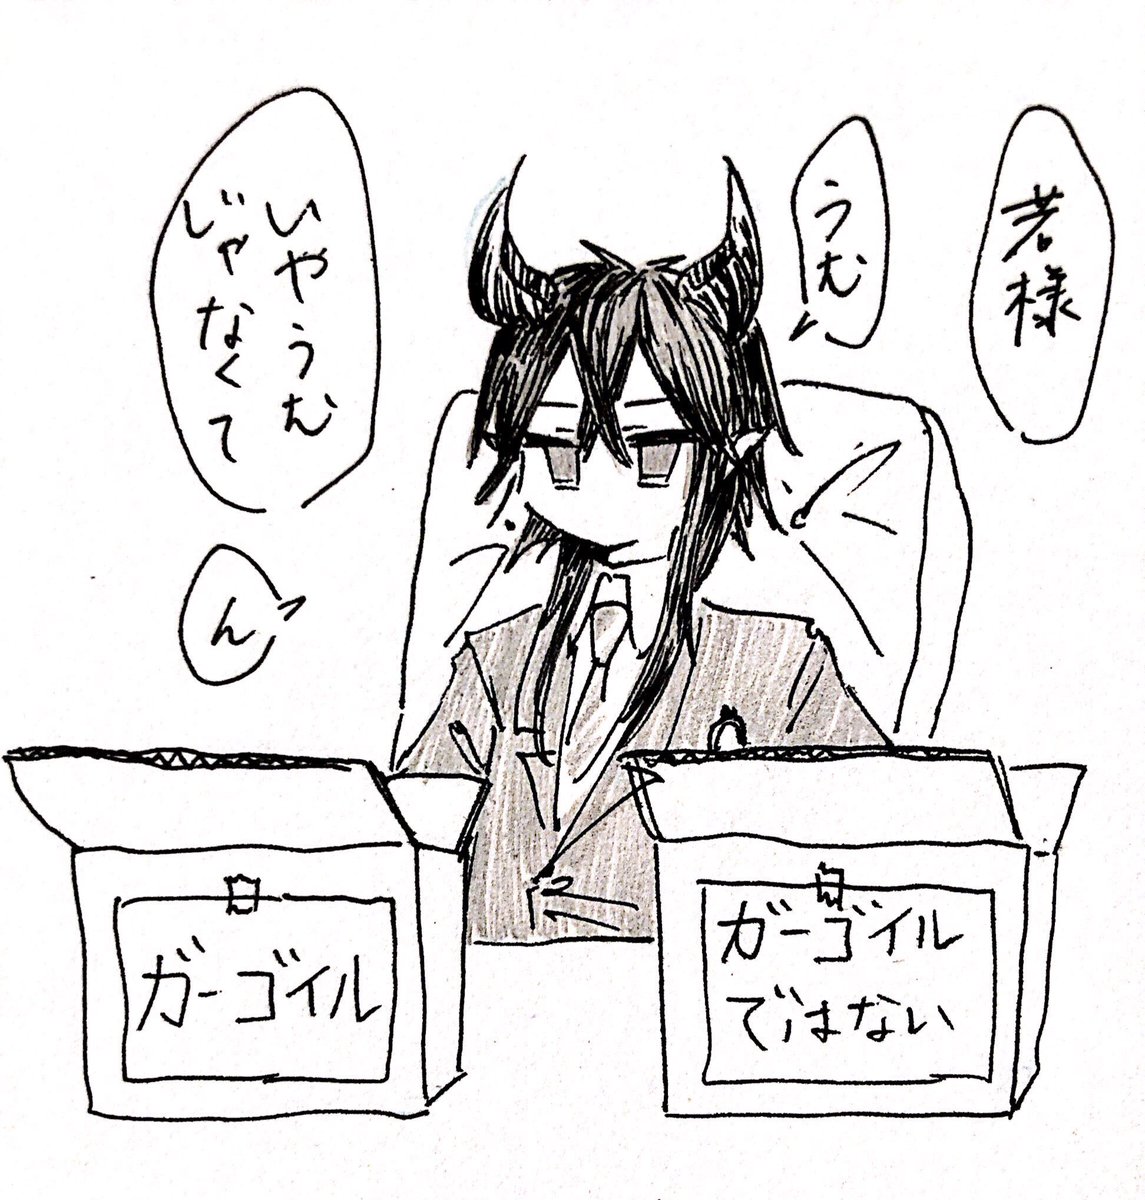 若様
うむ
いやうむ
じゃなくて
ん
ガーゴイル
ガーゴイル
ではない